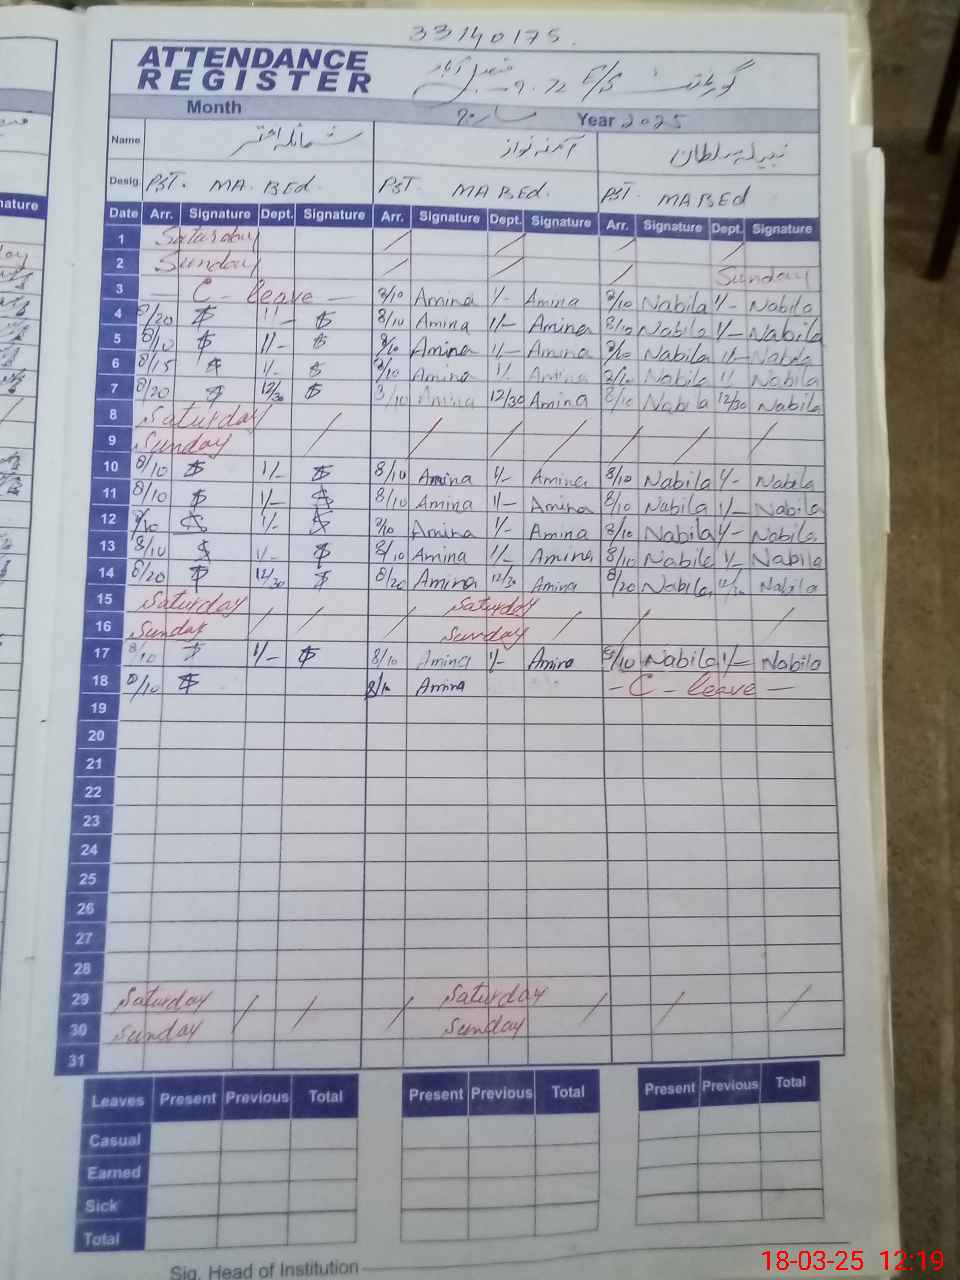 33140175.
ATTENDANCE
REGISTER
E/S 72
Month مارچ Year 2025
Name شمائلہ اختر آمنہ نواز نبیلہ سلطان
Desig. PST. MA. BEd. PST. MA BEd. PST. MA BEd
Date Arr. Signature Dept. Signature Arr. Signature Dept. Signature Arr. Signature Dept. Signature
1 Saturday / / / /
2 Sunday / / / Sunday
3 — C - leave — 8/10 Amina 1/- Amina 8/10 Nabila 1/- Nabila
4 8/20 1/- 8/10 Amina 1/- Amina 8/10 Nabila 1/- Nabila
5 8/10 1/- 8/10 Amina 1/- Amina 8/10 Nabila 1/- Nabila
6 8/15 1/- 8/10 Amina 1/ Amina 8/10 Nabila 1/ Nabila
7 8/20 12/30 8/10 Amina 12/30 Amina 8/10 Nabila 12/30 Nabila
8 Saturday
9 Sunday / / / / / / /
10 8/10 1/- 8/10 Amina 1/- Amina 8/10 Nabila 1/- Nabila
11 8/10 1/- 8/10 Amina 1/- Amina 8/10 Nabila 1/- Nabila
12 8/10 1/- 8/10 Amina 1/- Amina 8/10 Nabila 1/- Nabila
13 8/10 1/- 8/10 Amina 1/- Amina 8/10 Nabila 1/- Nabila
14 8/20 12/30 8/20 Amina 12/30 Amina 8/20 Nabila 12/30 Nabila
15 Saturday Saturday
16 Sunday / / / Sunday / / /
17 8/10 1/- 8/10 Amina 1/- Amina 8/10 Nabila 1/- Nabila
18 8/10 8/10 Amina - C - leave —
19
20
21
22
23
24
25
26
27
28
29 Saturday / / / Saturday / / /
30 Sunday Sunday
31
Leaves Present Previous Total Present Previous Total Present Previous Total
Casual
Earned
Sick
Total
Sig. Head of Institution
18-03-25 12:19